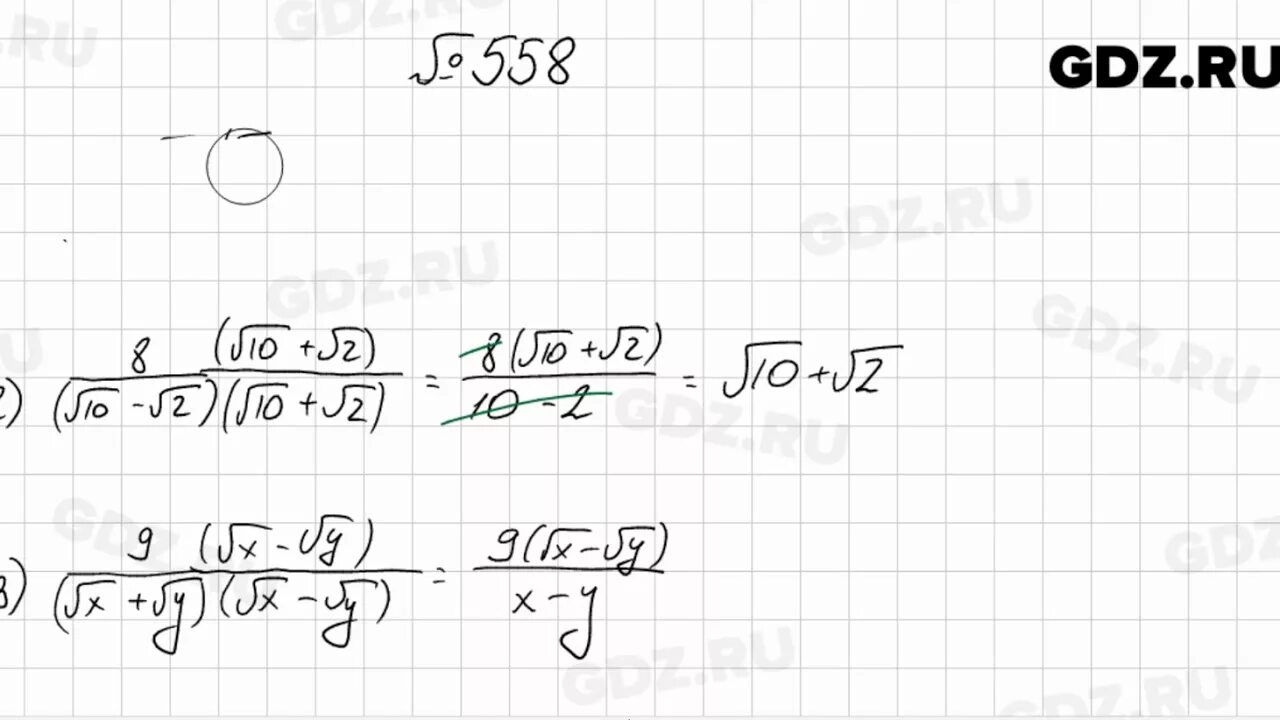 №558
GDZ.RU
2) 8(√10 + √2) / (√10 - √2)(√10 + √2) = 8(√10 + √2) / 10 - 2 = √10 + √2
3) 9(√x - √y) / (√x + √y)(√x - √y) = 9(√x - √y) / x - y